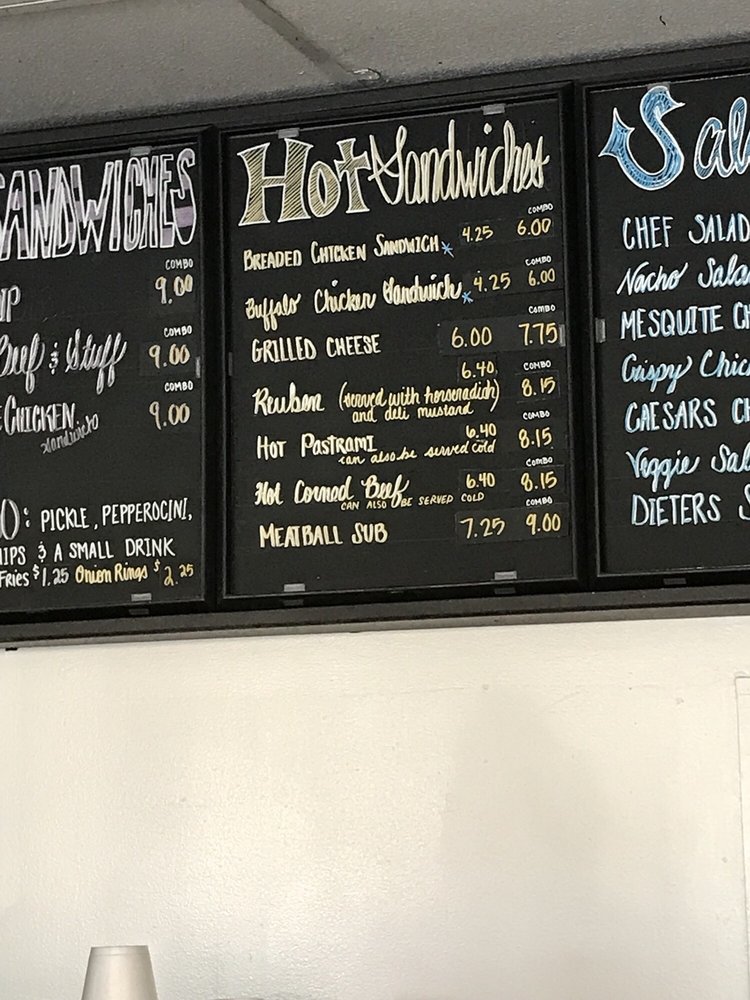 SANDWICHES
COMBO
9.00
COMBO
Beef & Stuff 9.00
COMBO
CHICKEN 9.00
Sandwich
PICKLE, PEPPEROCINI,
& A SMALL DRINK
Fries $1.25 Onion Rings $2.25
Hot Sandwiches
COMBO
BREADED CHICKEN SANDWICH * 4.25 6.00
COMBO
Buffalo Chicken Sandwich * 4.25 6.00
COMBO
GRILLED CHEESE 6.00 7.75
COMBO
Reuben (served with horseradish and deli mustard) 6.40 8.15
COMBO
HOT PASTRAMI 6.40 8.15
can also be served cold
COMBO
Hot Corned Beef 6.40 8.15
CAN ALSO BE SERVED COLD
COMBO
MEATBALL SUB 7.25 9.00
CHEF SALAD
Nacho
MESQUITE
Crispy
CAESARS
Veggie
DIETERS